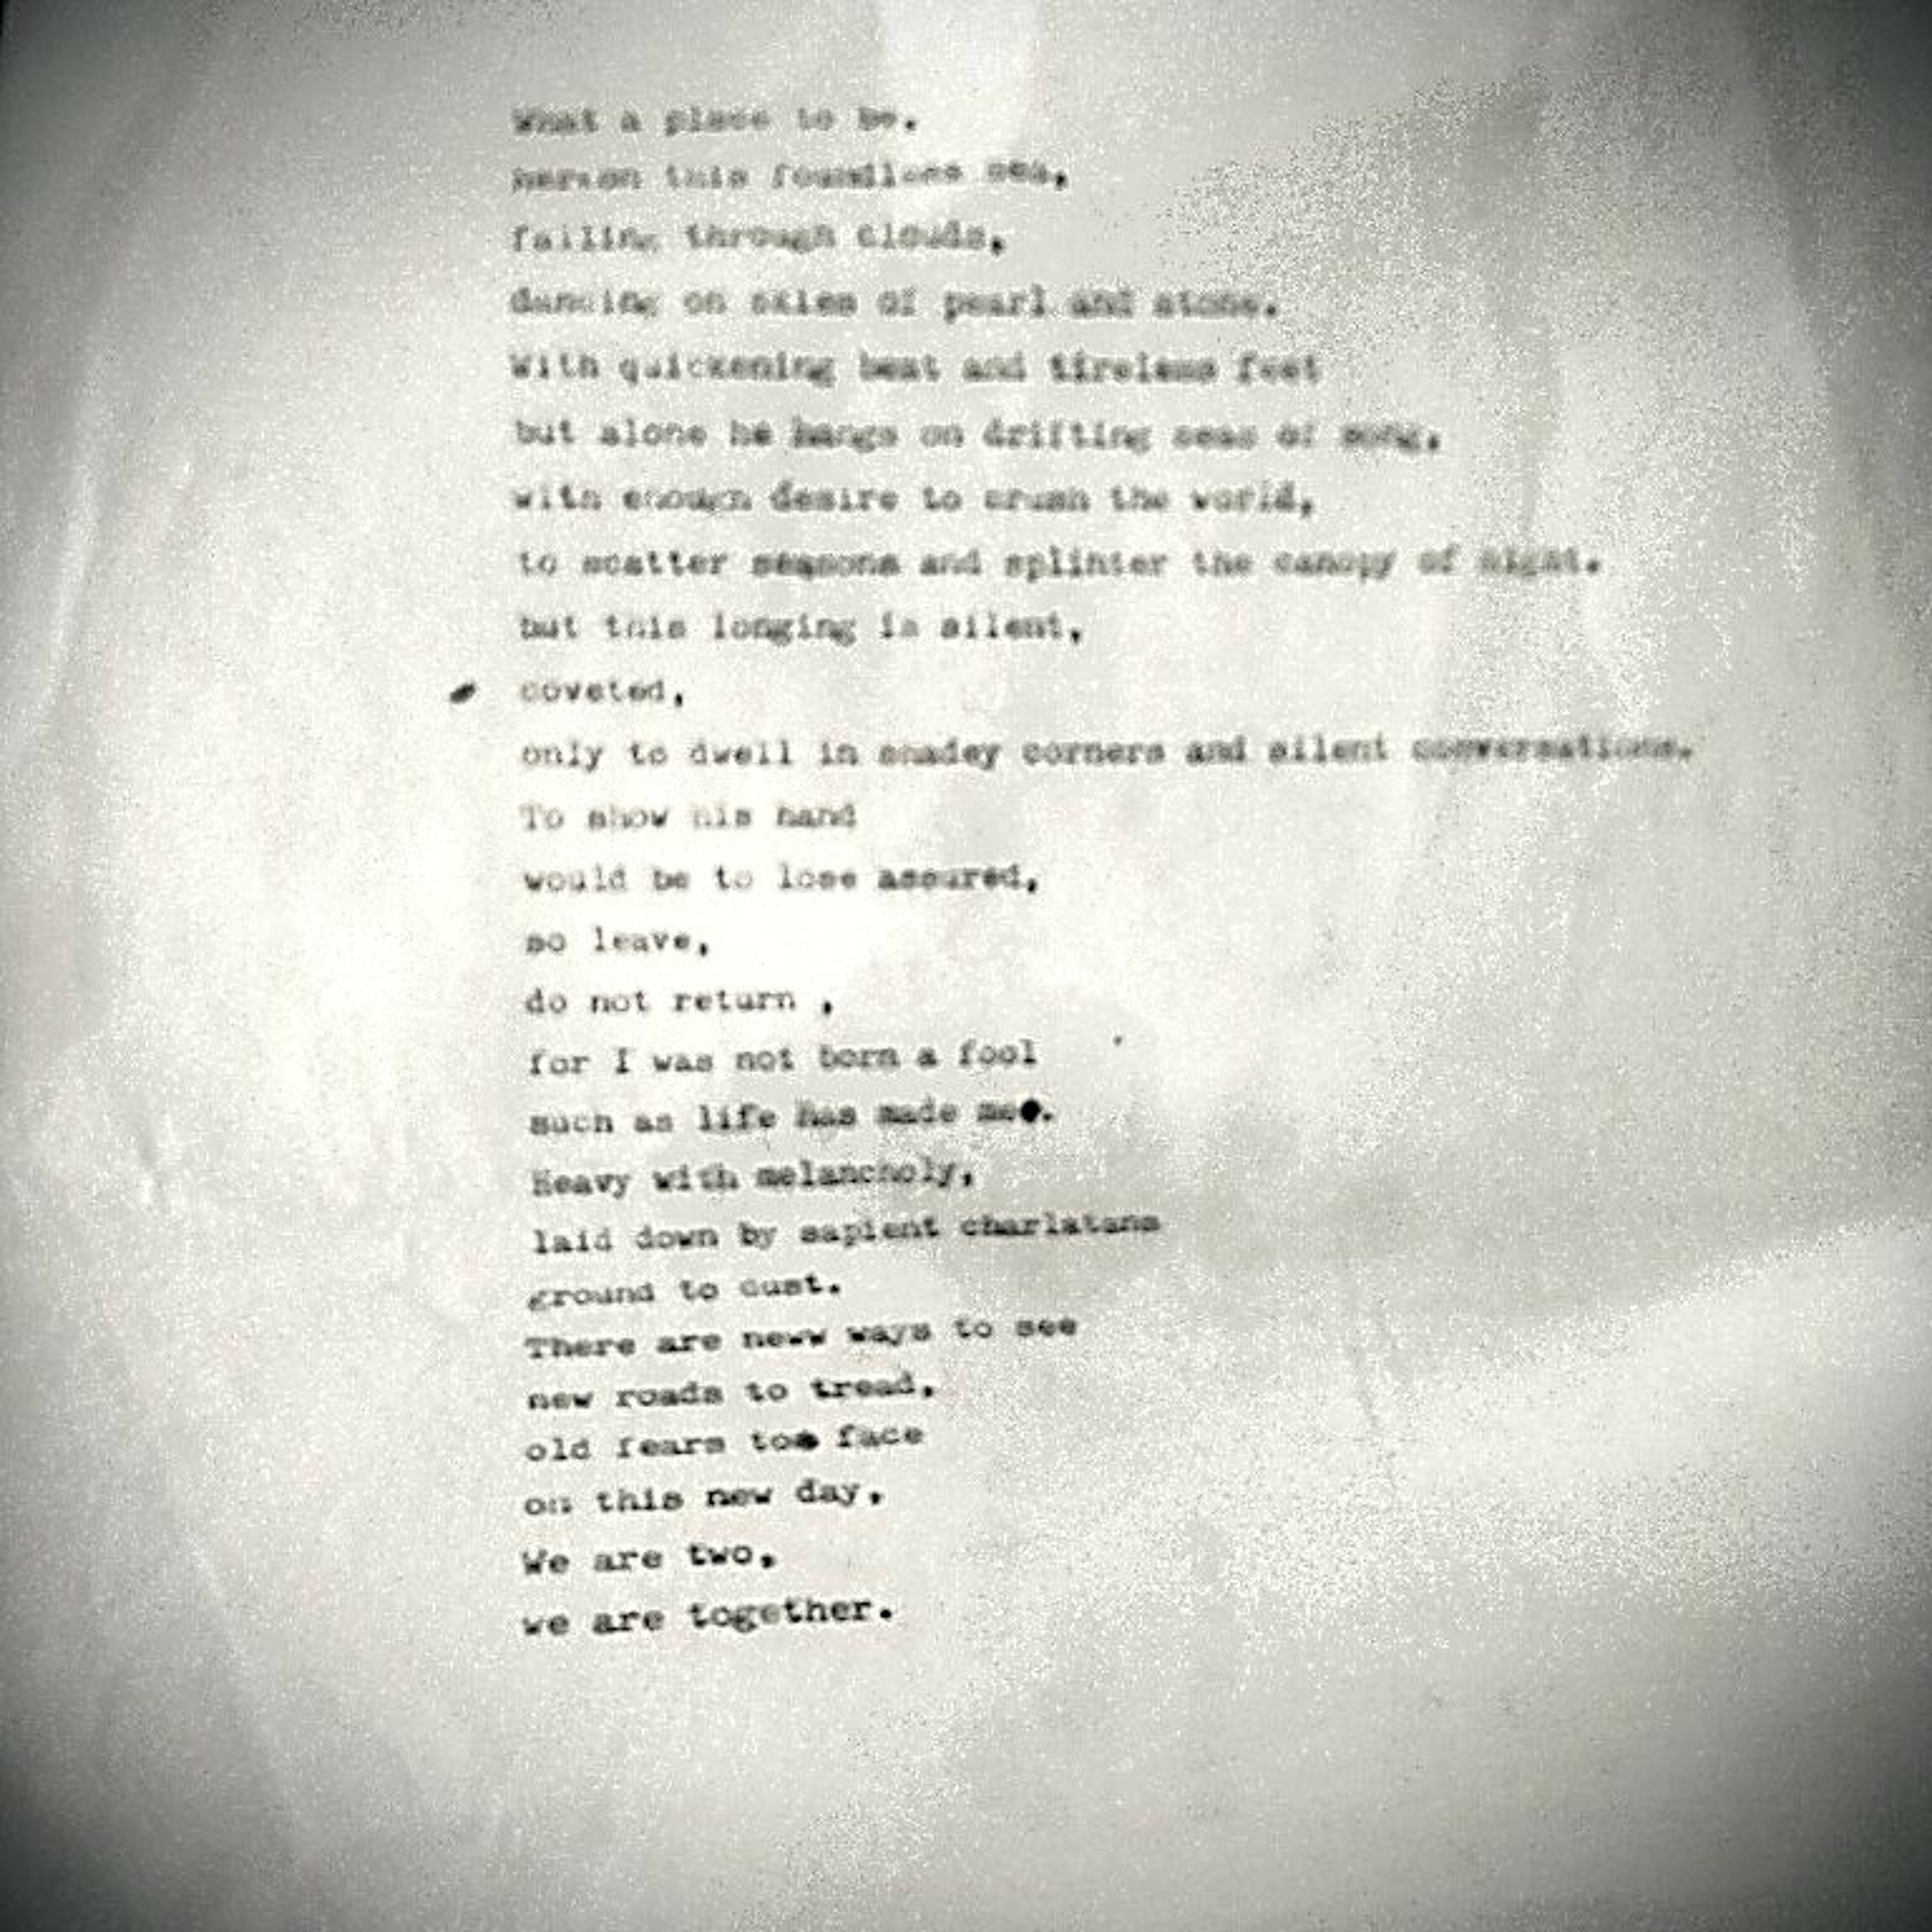 What a place to be.
this sea,
falling through clouds,
dancing on skies of pearl and stone.
With quickening beat and tireless feet
but alone he hangs on drifting seas of song,
with enough desire to crush the world,
to scatter seasons and splinter the canopy of night.
but this longing is silent,
coveted,
only to dwell in shadey corners and silent conversations.
To show his hand
would be to lose assured,
so leave,
do not return ,
for I was not born a fool
such as life has made me.
Heavy with melancholy,
laid down by sapient charlatans
ground to dust.
There are neww ways to see
new roads to tread,
old fears to face
on this new day,
We are two,
we are together.